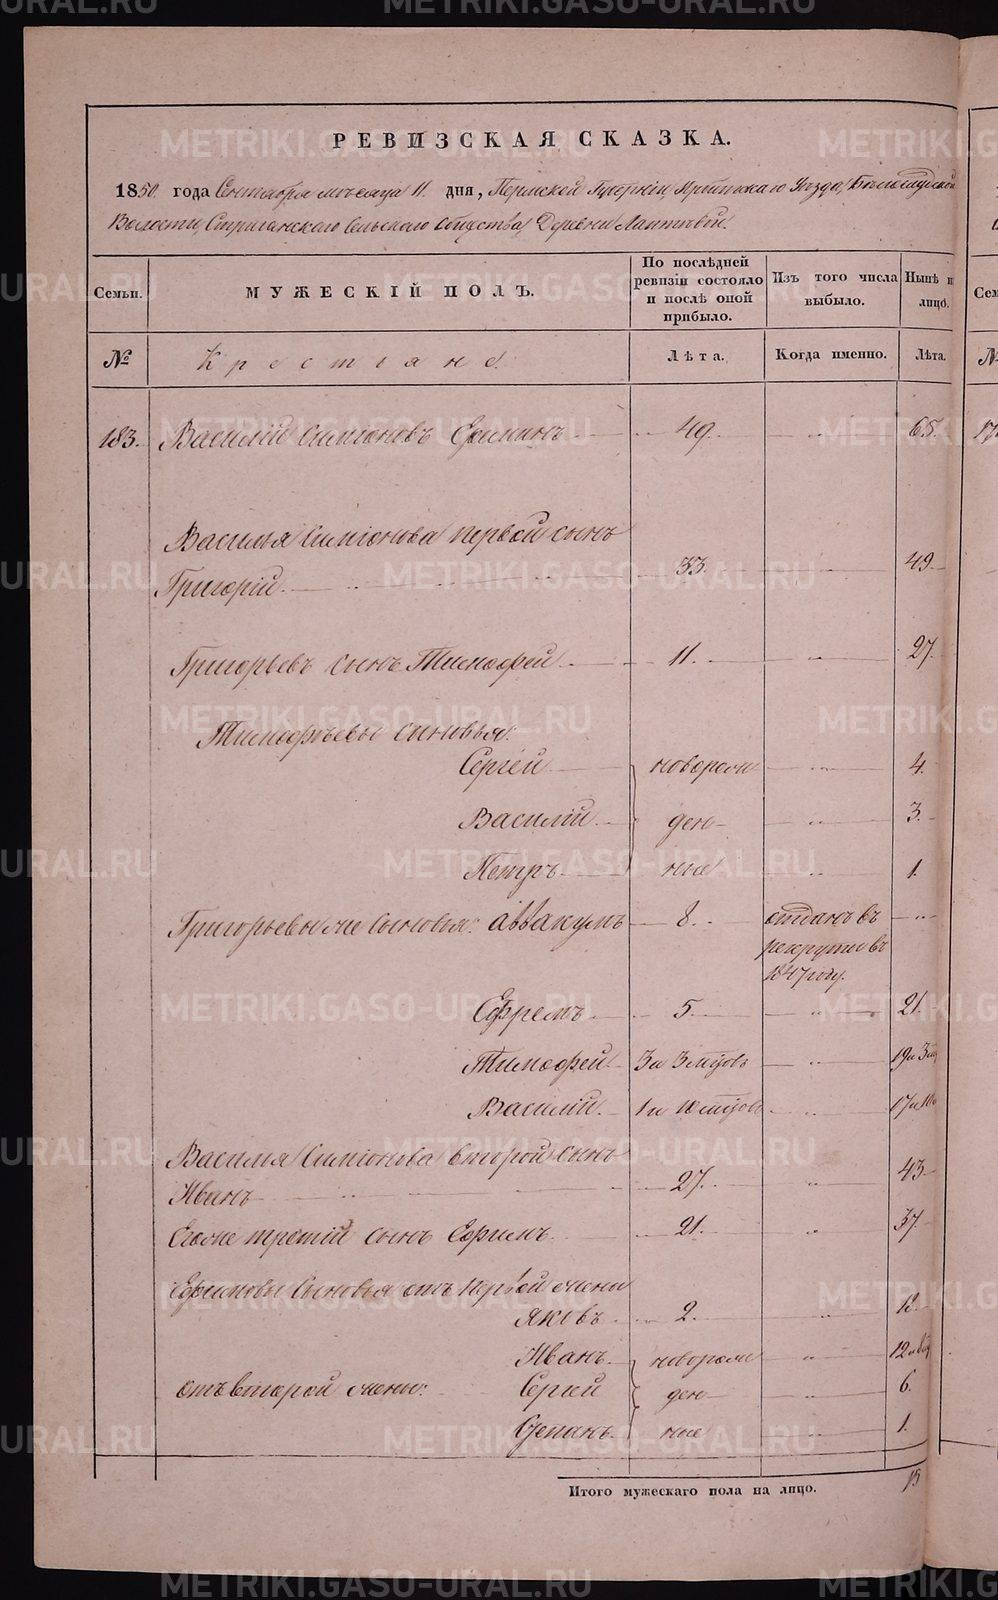 РЕВИЗСКАЯ СКАЗКА.
1850. года Сентября мѣсяца 11. дня, Пермской Губерніи, Ирбитскаго Уѣзда,
Волости, Стриганскаго Сельскаго Общества, Деревни Лаптевой.
Семьи. МУЖЕСКІЙ ПОЛЪ. По послѣдней ревизіи состояло и послѣ оной прибыло. Изъ того числа выбыло. Нынѣ на лицо.
№ Крестьяне. Лѣта. Когда именно. Лѣта.
183. Василій Симіоновъ Ереминъ 49. 65.
Василья Симіонова первой сынъ
Григорій. 33 49.
Григорьевъ сынъ Тимофей 11. 27.
Тимофѣевы сыновья:
Сергей новорож 4.
Василій ден 3.
Петръ ные 1.
Григорьевы же сыновья: Аввакумъ 8. отданъ въ
рекруты въ
1847 году.
Ефремъ 5. 21.
Тимофей 3 и 3 мцовъ 19 и 3 мц
Василій 1 и 10 мцовъ 17 и 10
Василья Симіонова второй сынъ
Иванъ 27. 43.
Его же третій сынъ Ефимъ 21. 37
Ефимовы сыновья отъ первой жены
Яковъ 2. 18.
Иванъ новорож 12
отъ второй жены: Сергей ден 6.
Степанъ ные 1.
Итого мужескаго пола на лицо. 15
METRIKI.GASO-URAL.RU